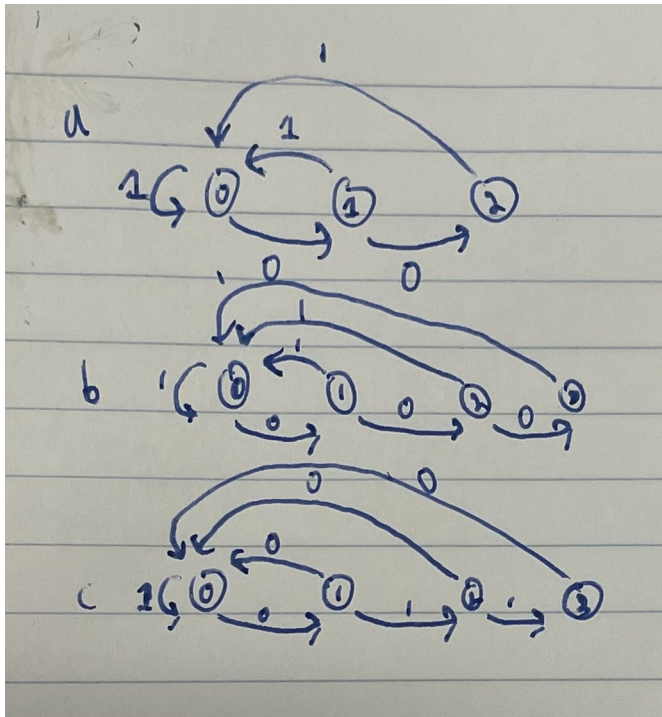 1
a 1
1 0 1 2
0 0
1 1
1
1 0 1 2 3
b 0 0 0
0 0
0
c 1 0 1 2 3
0 1 1